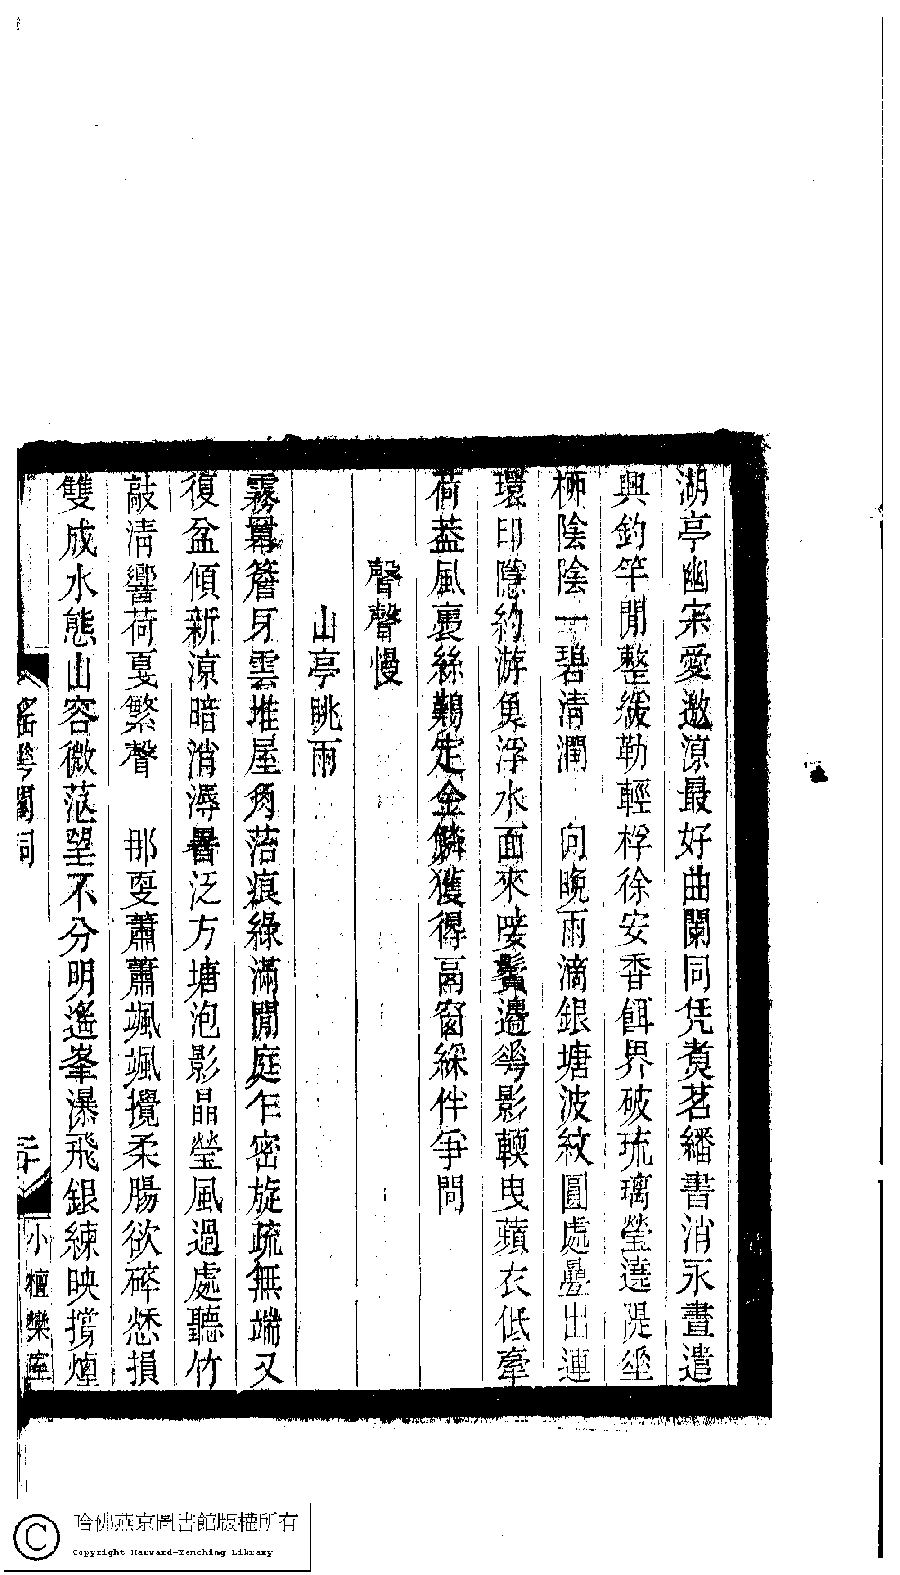 湖亭幽寂愛邀涼最好曲闌同凭煑茗繙書消永晝遣
興釣竿閒整緩勒輕桴徐安香餌界破琉璃瑩遶隄垂
柳陰陰一碧清潤　向晚雨滴銀塘波紋圓處疊出連
環印隱約游魚浮水面來唼鬢邊夸影輭曳蘋衣低牽
荷葢風裏絲難定金鱗獲得鬲窗綵伴爭問
聲聲慢
山亭眺雨
霧羃簷牙雲堆屋角萿痕綠滿閒庭乍密旋疏無端又
復盆傾新涼暗消溽暑泛方塘泡影晶瑩風過處聽竹
敲清響荷戛繁聲　那更蕭蕭颯颯攪柔腸欲碎愁損
雙成水態山容微茫望不分明遙峯瀑飛銀練映撐煙
瑤華閣詞
二十
小檀欒室
哈佛燕京圖書館版權所有
Copyright Harvard-Yenching Library